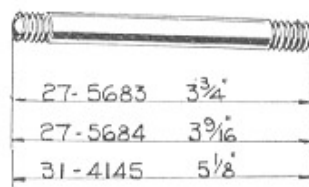 27-5683 3¾"
27-5684 3 9/16"
31-4145 5⅛"